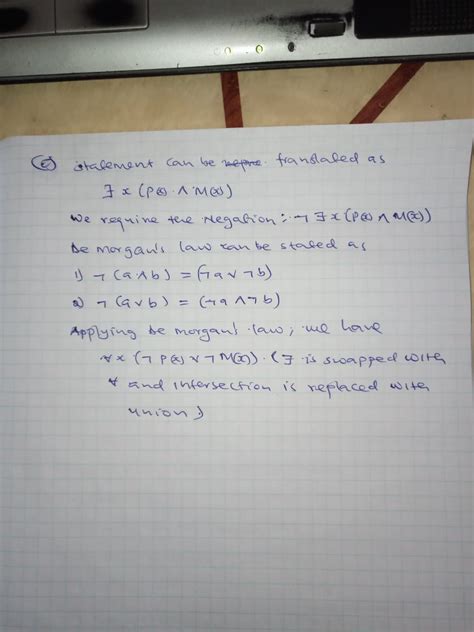 (c) statement can be translated as
∃x (P(x) ∧ M(x))
We require the Negation: ¬∃x(P(x) ∧ M(x))
De morgan's law can be stated as
1) ¬(a∧b) = (¬a∨¬b)
2) ¬(a∨b) = (¬a∧¬b)
Applying De morgan's law, we have
∀x (¬P(x) ∨ ¬M(x)). (∃ is swapped with
∀ and intersection is replaced with
union)